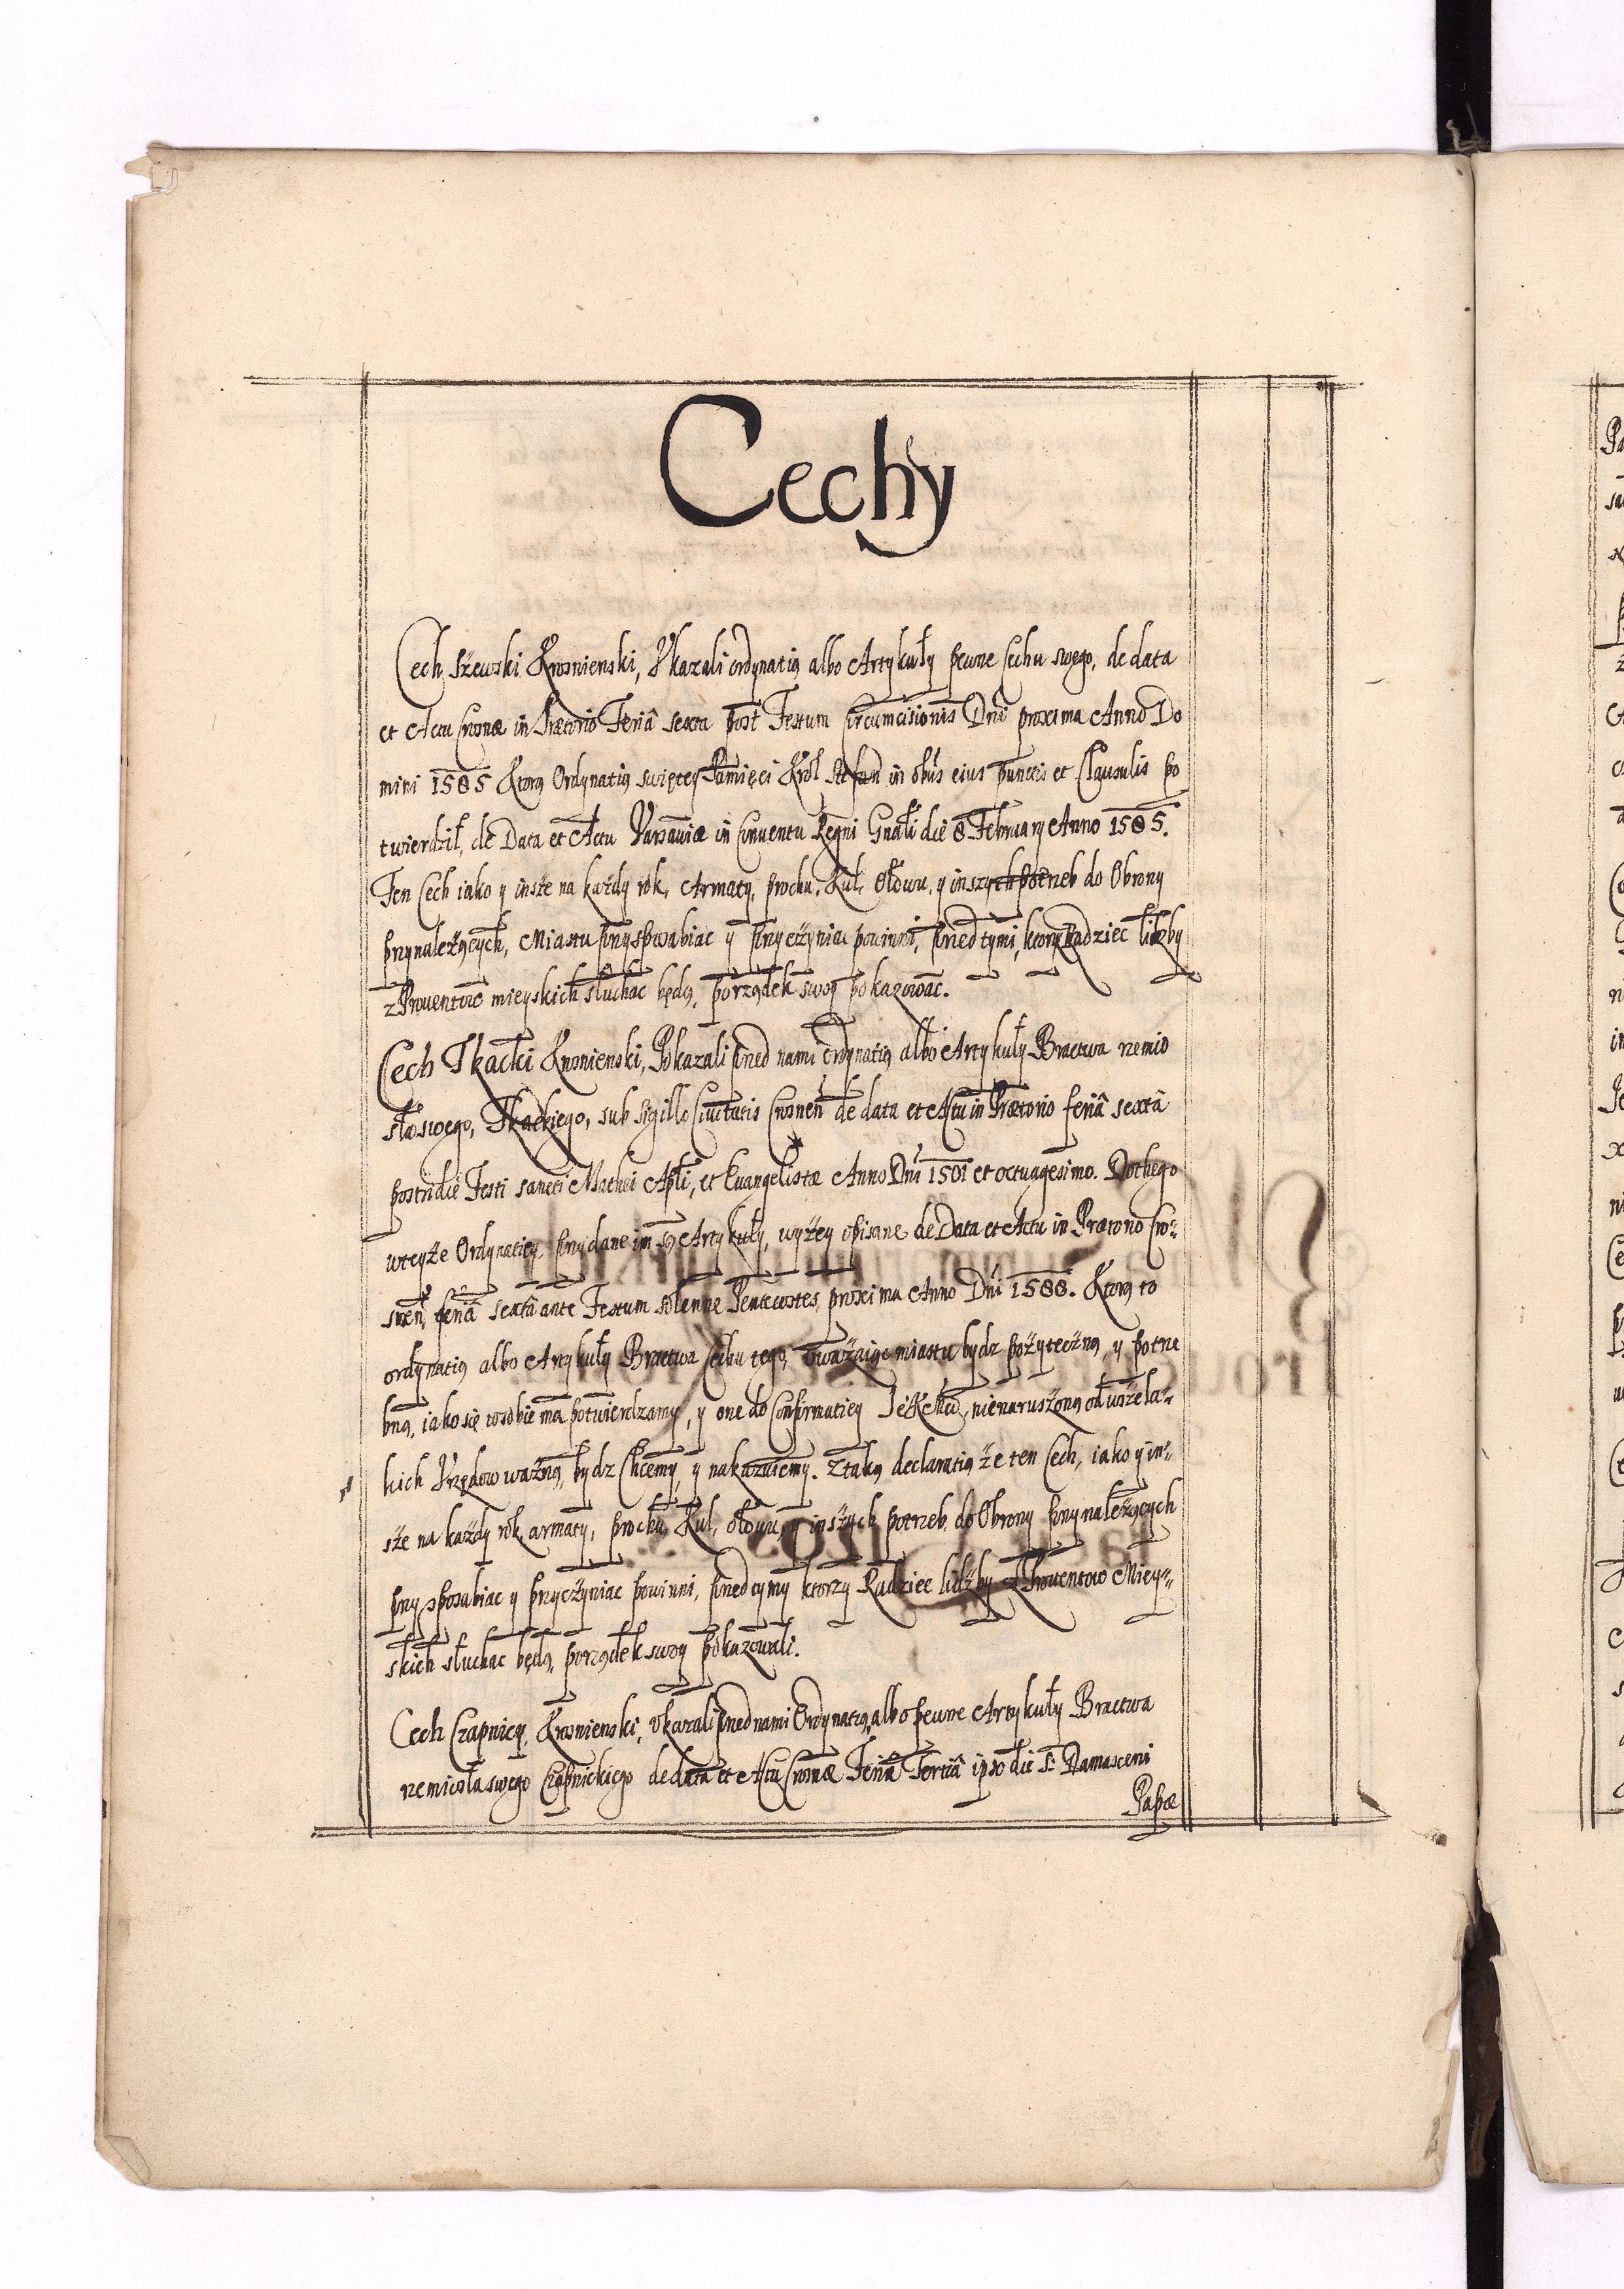 Cechy
Cech Szewski Krosnienski, Vkazali ordynatią albo Artykuły pewne Cechu swego, de data
et Actu Crosnæ in Prætorio Feriâ sexta post Festum Circumcisionis Dni proxima Anno Do
mini 1585 Ktorą Ordynatią swiętey Pamięci Krol Stefan in oibus eius punctis et Clausulis po
twierdził, de Data et Actu Varsaviæ in Conuentu Regni Gnali die 8 February Anno 1585.
Ten Cech iako y insze na każdy rok, Armaty, prochu, Kul, Ołowu, y inszych potrzeb do Obrony
przynależących, Miastu przysposabiac y przyczyniac powinni, przed tymi, ktorzy Radziec liczby
z Prouentow mieyskich słuchac będą, porządek swoy pokazowac.
Cech Tkacki Krosnienski, Pokazali przed nami ordynatią albo Artykuły Bractwa rzemio
sła swego, Tkackiego, sub Sigillo Ciuitatis Crosnen de data et Actu in Prætorio feriâ sextâ
postridie Festi sancti Mathei Apli, et Euangelistæ Anno Dni 1501 et octuagesimo. Do thego
w teyże Ordynatiey przydane im są Artykuły, wyżey opisane de Data et Actu in Prætorio Cro¬
snen, feriâ sextâ ante Festum solenne Pentecostes, proxima Anno Dni 1588. Ktorą to
ordynatią albo Artykuły Bractwa Cechu tego, vważaiąc miastu bydz pożyteczną, y potrze
bną, iako się w sobie ma potwierdzamy, y one do Confirmatiey nienaruszoną od wszela¬
kich Vrzędow ważną, bydz Chcemy, y nakazuiemy. Z taką declaratią że ten Cech, iako y in¬
sze na każdy rok, armaty, prochu, Kul, ołowu, y inszych potrzeb do Obrony przynależących
przysposabiac y przyczyniac powinni, przed tymy ktorzy Radziec lidzby z Prouentow Miey¬
skich słuchac będą, porządek swoy pokazowali.
Cech Czapnicy, Krosnienski, vkazali przed nami Ordynatią, albo pewne Artykuły Bractwa
rzemiosła swego Czapnickiego de data et Actu Crosnæ Feriâ Tertiâ ipso die S. Damasceni
Papæ